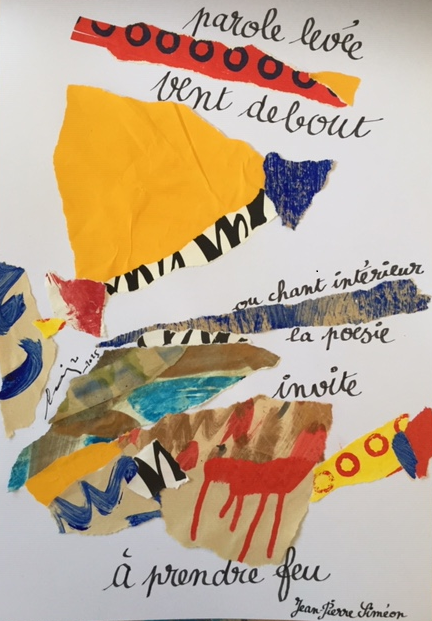 parole levée
vent debout
ou chant intérieur
la poésie
invite
à prendre feu
Jean Pierre Siméon